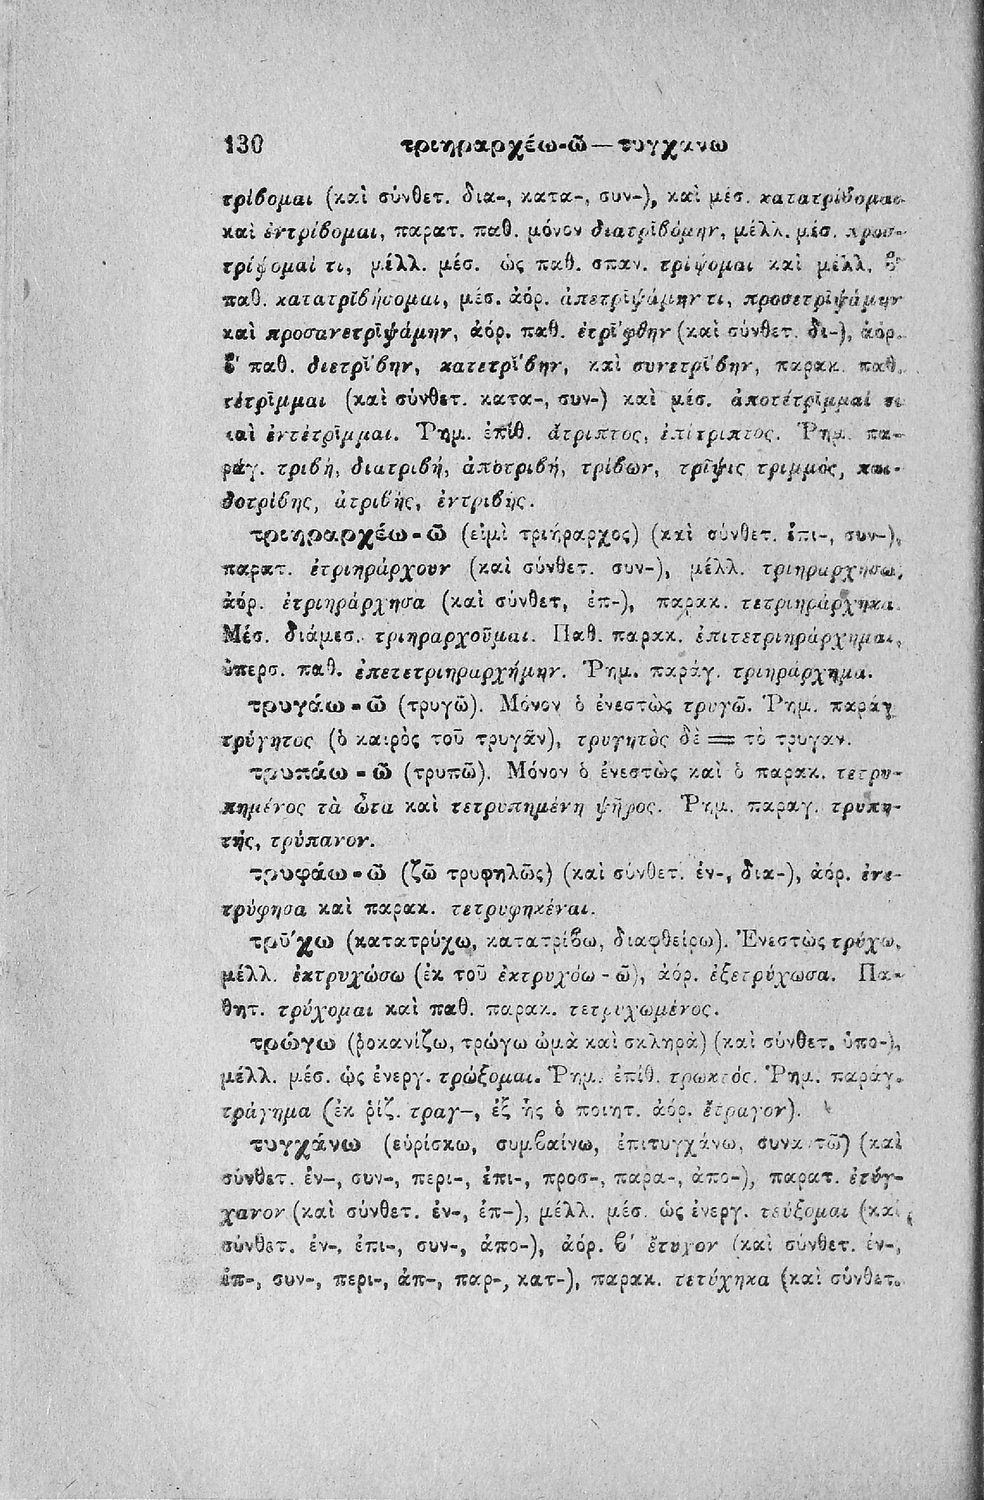 130 τριηραρχέω-ῶ — τυγχάνω
τρίβομαι (καὶ σύνθετ. δια-, κατα-, συν-), καὶ μέσ. κατατρίβομαι
καὶ ἐντρίβομαι, παρατ. παθ. μόνον διατρῑβόμην, μέλλ. μέσ. προσ-
τρίψομαί τι, μέλλ. μέσ. ὡς παθ. σπαν. τρίψομαι καὶ μέλλ. β'
παθ. κατατρῐβήσομαι, μέσ. ἀόρ. ἀπετρῑψάμην τι, προσετρῑψάμην
καὶ προσανετρῑψάμην, ἀόρ. παθ. ἐτρί̄φθην (καὶ σύνθετ. δι-), ἀόρ.
β' παθ. διετρί̆βην, κατετρί̆βην, καὶ συνετρί̆βην, παρακ. παθ.
τέτρῑμμαι (καὶ σύνθετ. κατα-, συν-) καὶ μέσ. ἀποτέτρῑμμαί τι
καὶ ἐντέτρῑμμαι. Ῥημ. ἐπίθ. ἄτριπτος, ἐπίτριπτος. Ῥημ. πα-
ράγ. τριβή, διατριβή, ἀποτριβή, τρίβων, τρῖψις τριμμός, παι-
δοτρίβης, ἀτριβής, ἐντριβής.
τριηραρχέω-ῶ (εἰμὶ τριήραρχος) (καὶ σύνθετ. ἐπι-, συν-),
παρατ. ἐτριηράρχουν (καὶ σύνθετ. συν-), μέλλ. τριηραρχήσω,
ἀόρ. ἐτριηράρχησα (καὶ σύνθετ, ἐπ-), παρακ. τετριηράρχηκα.
Μέσ. διάμεσ. τριηραρχοῦμαι. Παθ. παρακ. ἐπιτετριηράρχημαι,
ὑπερσ. παθ. ἐπετετριηραρχήμην. Ῥημ. παράγ. τριηράρχημα.
τρυγάω-ῶ (τρυγῶ). Μόνον ὁ ἐνεστὼς τρυγῶ. Ῥημ. παράγ
τρύγητος (ὁ καιρὸς τοῦ τρυγᾶν), τρυγητὸς δὲ = τὸ τρυγαν.
τρυπάω-ῶ (τρυπῶ). Μόνον ὁ ἐνεστὼς καὶ ὁ παρακ. τετρυ-
πημένος τὰ ὦτα καὶ τετρυπημένη ψῆφος. Ῥημ. παραγ. τρυπη-
τής, τρύπανον.
τρυφάω-ῶ (ζῶ τρυφηλῶς) (καὶ σύνθετ. ἐν-, δια-), ἀόρ. ἐνε-
τρύφησα καὶ παρακ. τετρυφηκέναι.
τρῡ́χω (κατατρύχω, κατατρίβω, διαφθείρω). Ἐνεστὼς τρύχω,
μέλλ. ἐκτρυχώσω (ἐκ τοῦ ἐκτρυχόω-ῶ), ἀόρ. ἐξετρύχωσα. Πα-
θητ. τρύχομαι καὶ παθ. παρακ. τετρυχωμένος.
τρώγω (ῥοκανίζω, τρώγω ὠμὰ καὶ σκληρὰ) (καὶ σύνθετ. ὑπο-),
μέλλ. μέσ. ὡς ἐνεργ. τρώξομαι. Ῥημ. ἐπίθ. τρωκτός. Ῥημ. παράγ.
τράγημα (ἐκ ῥίζ. τραγ-, ἐξ ἧς ὁ ποιητ. ἀόρ. ἔτραγον).
τυγχάνω (εὑρίσκω, συμβαίνω, ἐπιτυγχάνω, συναντῶ) (καὶ
σύνθετ. ἐν-, συν-, περι-, ἐπι-, προσ-, παρα-, ἀπο-), παρατ. ἐτύγ-
χανον (καὶ σύνθετ. ἐν-, ἐπ-), μέλλ. μέσ. ὡς ἐνεργ. τεύξομαι (καὶ
σύνθετ. ἐν-, ἐπι-, συν-, ἀπο-), ἀόρ. β' ἔτυχον (καὶ σύνθετ. ἐν-,
ἐπ-, συν-, περι-, ἀπ-, παρ-, κατ-), παρακ. τετύχηκα (καὶ σύνθετ.